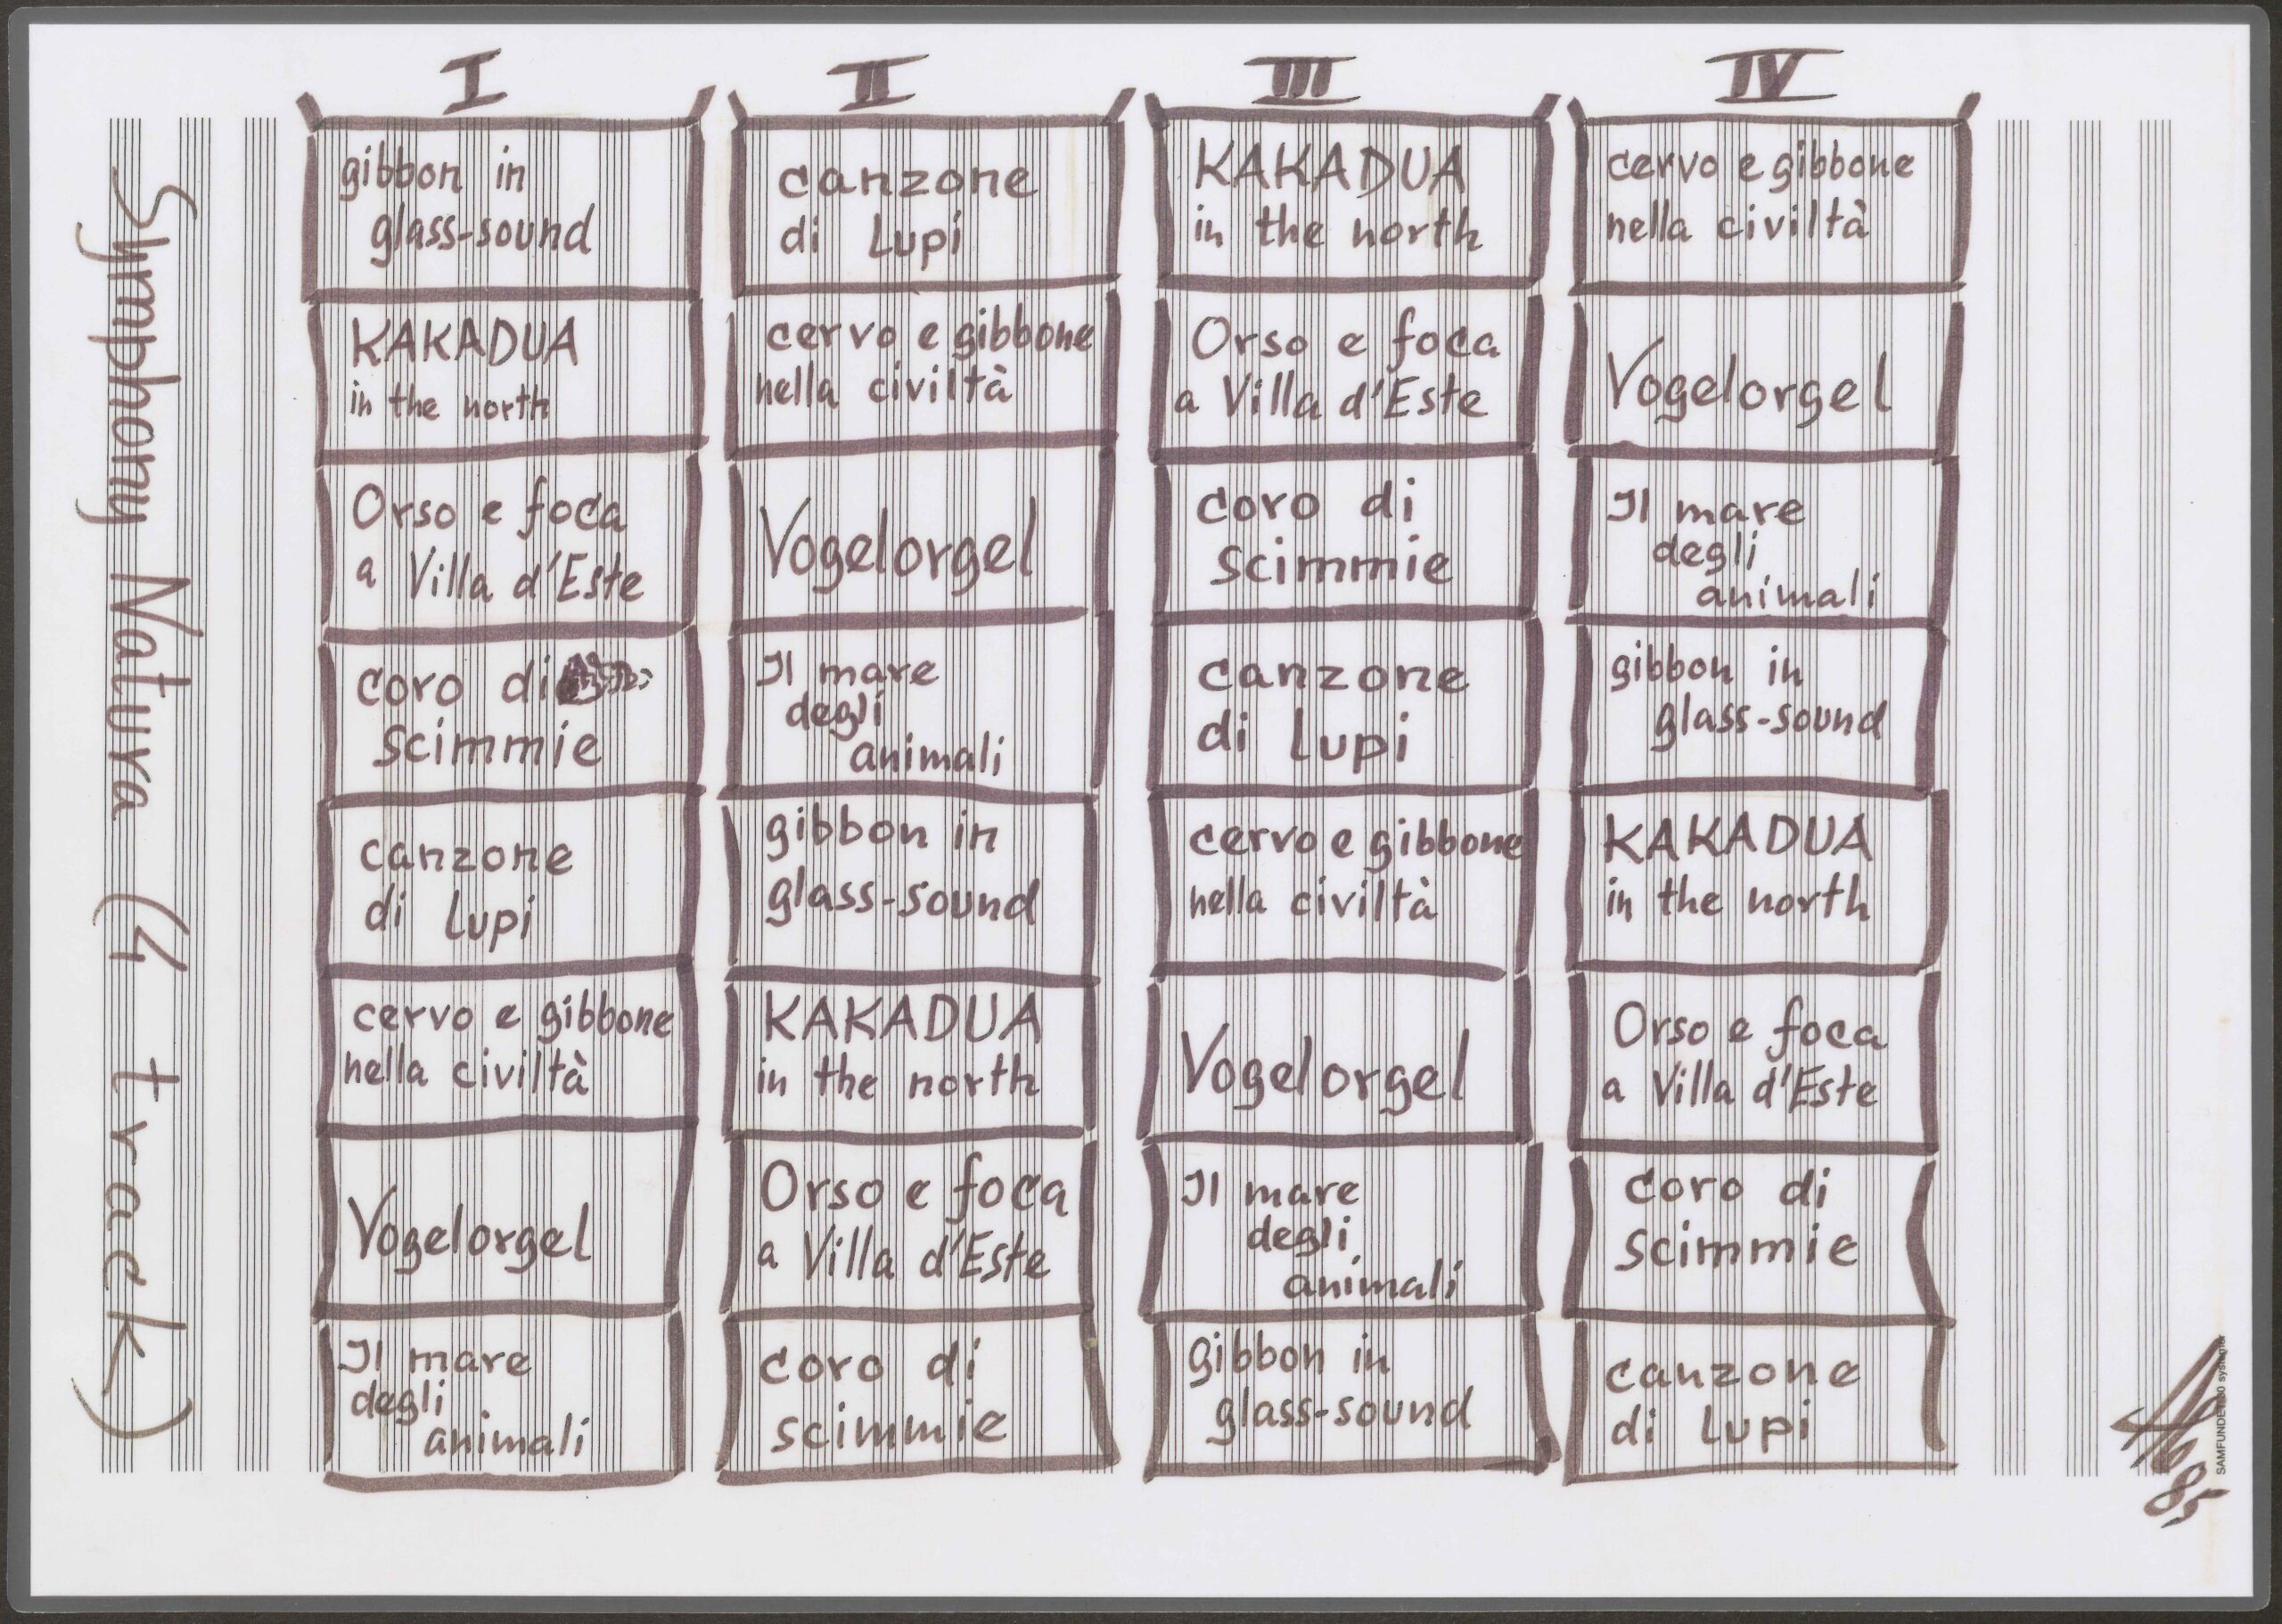 Symphony Natura (4 track)
I
gibbon in
glass-sound
KAKADUA
in the north
Orso e foca
a Villa d'Este
coro di
scimmie
canzone
di Lupi
cervo e gibbone
nella civiltà
Vogelorgel
Il mare
degli
animali
II
canzone
di Lupi
cervo e gibbone
nella civiltà
Vogelorgel
Il mare
degli
animali
gibbon in
glass-sound
KAKADUA
in the north
Orso e foca
a Villa d'Este
coro di
scimmie
III
KAKADUA
in the north
Orso e foca
a Villa d'Este
coro di
scimmie
canzone
di Lupi
cervo e gibbone
nella civiltà
Vogelorgel
Il mare
degli
animali
gibbon in
glass-sound
IV
cervo e gibbone
nella civiltà
Vogelorgel
Il mare
degli
animali
gibbon in
glass-sound
KAKADUA
in the north
Orso e foca
a Villa d'Este
coro di
scimmie
canzone
di Lupi
85